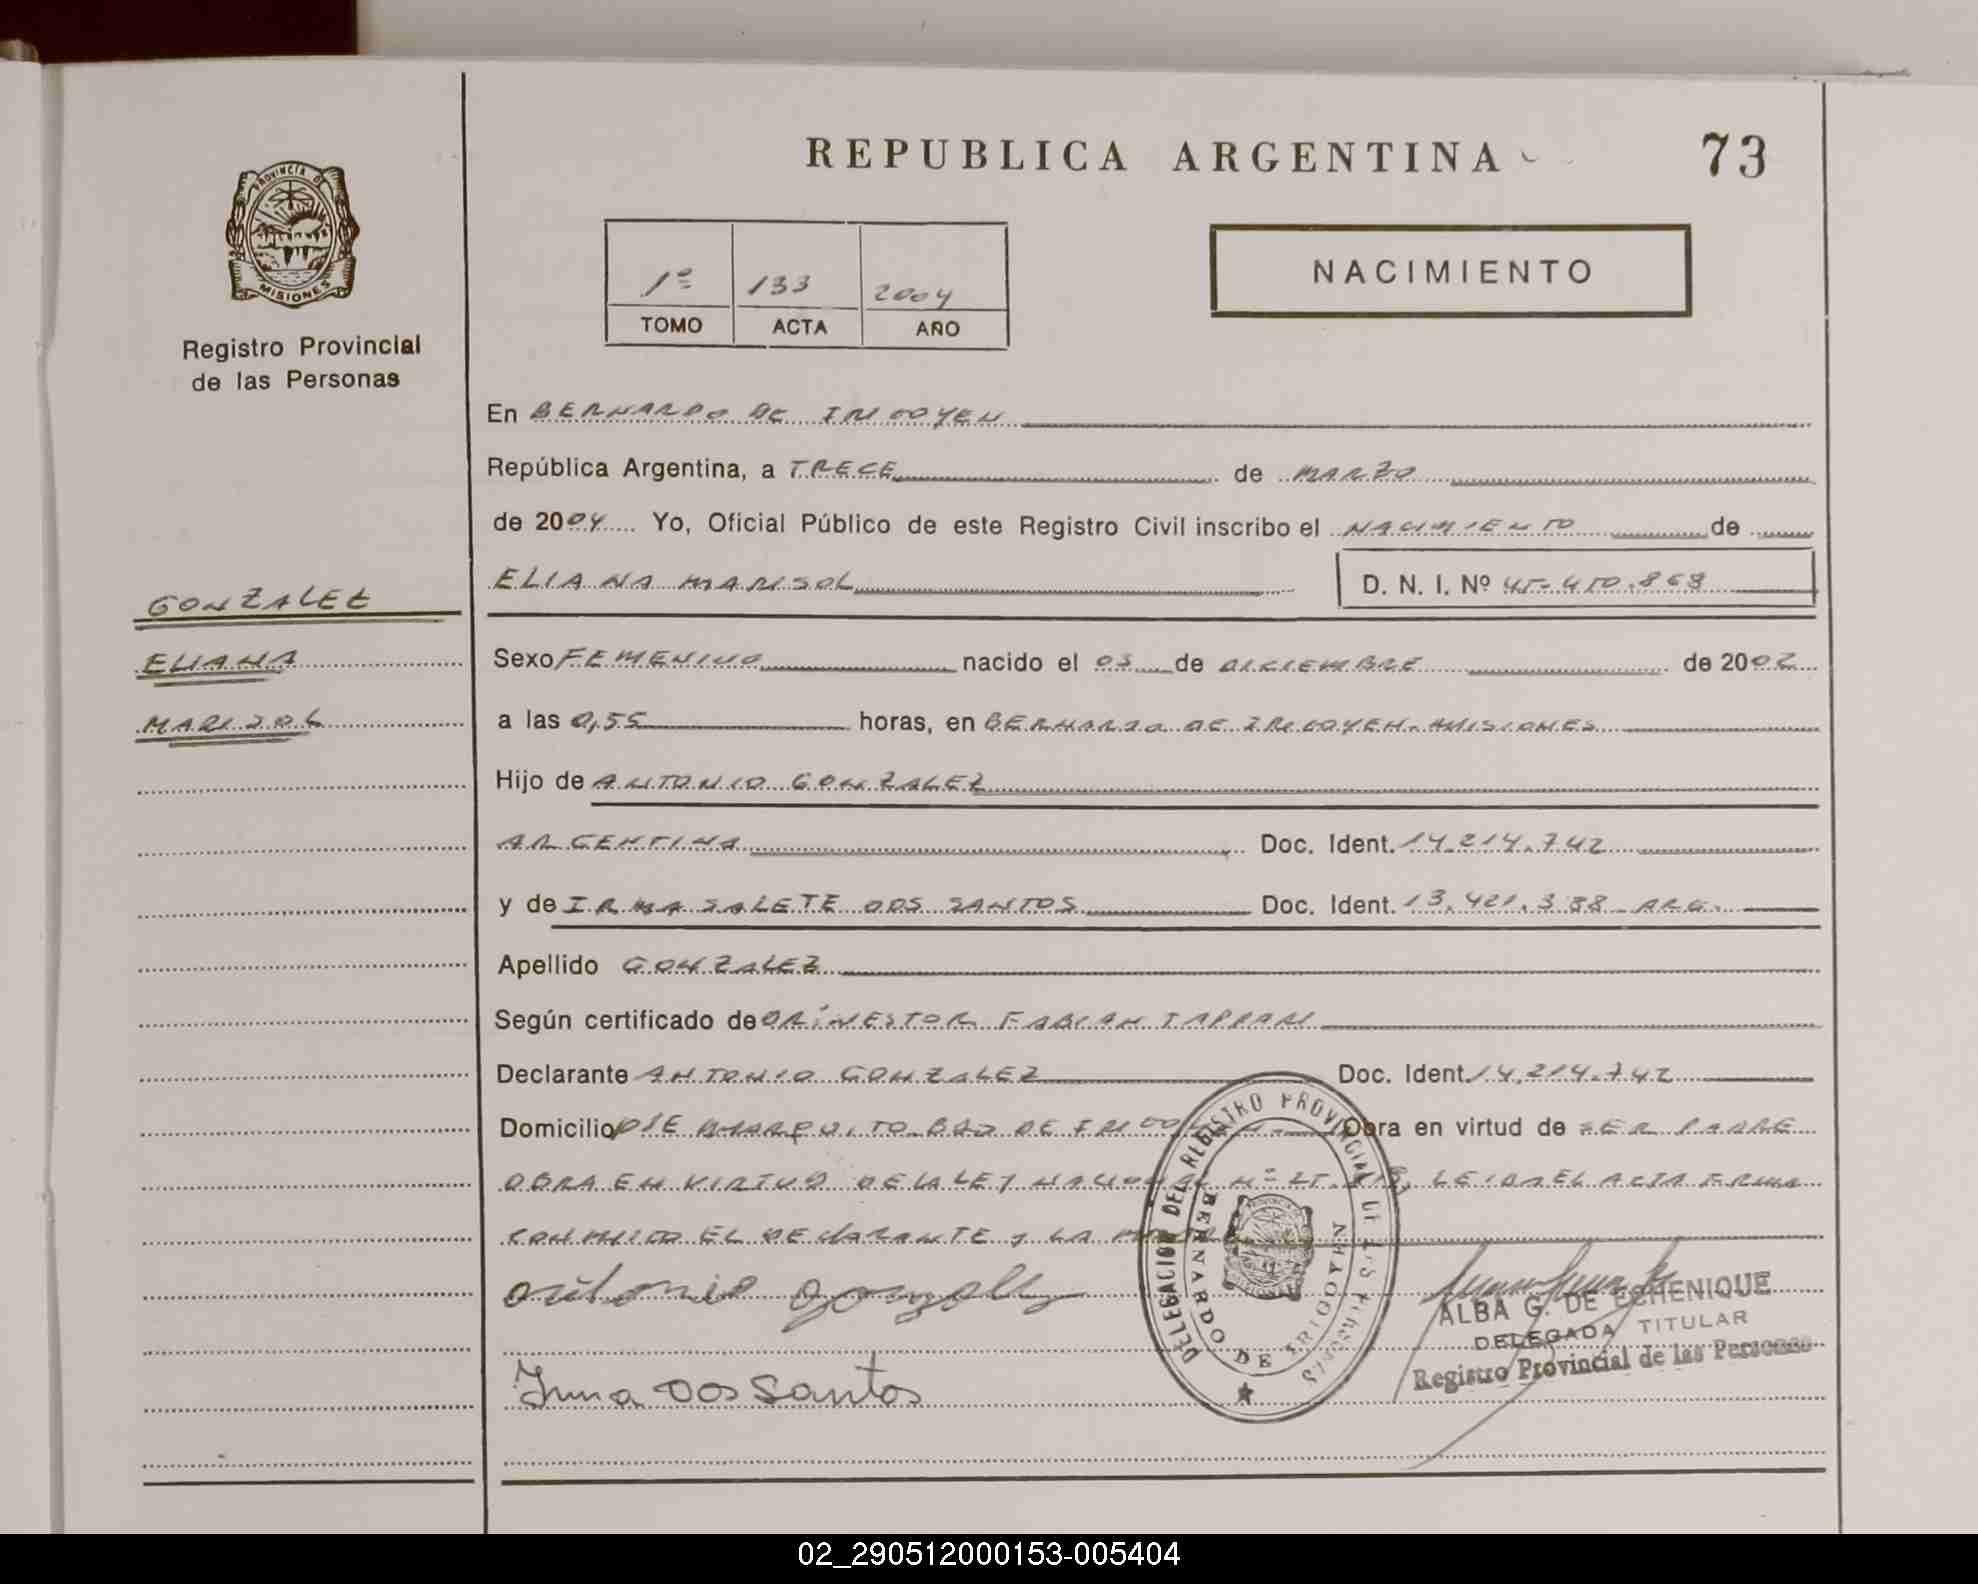 REPUBLICA ARGENTINA
73
PROVINCIA DE
MISIONES
Registro Provincial
de las Personas
1º 133 2004
TOMO ACTA AÑO
NACIMIENTO
En BERNARDO DE IRIGOYEN
República Argentina, a TRECE de MARZO
de 2004 Yo, Oficial Público de este Registro Civil inscribo el NACIMIENTO de
ELIANA MARISOL D. N. I. Nº 45.450.868
GONZALEZ
ELIANA
MARISOL
Sexo FEMENINO nacido el 03 de DICIEMBRE de 2002
a las 0,55 horas, en BERNARDO DE IRIGOYEN. MISIONES
Hijo de ANTONIO GONZALEZ
ARGENTINA Doc. Ident. 14.214.742
y de IRMA SALETE DOS SANTOS Doc. Ident. 13.421.388 ARG.
Apellido GONZALEZ
Según certificado de DR. NESTOR FABIAN
Declarante ANTONIO GONZALEZ Doc. Ident. 14.214.742
Domicilio BDO DE IRIGOYEN Obra en virtud de SER PADRE
OBRA EN VIRTUD DE LA LEY NACIONAL Nº LEIDA EL ACTA FIRMA
CONMIGO EL DECLARANTE y LA MADRE
Antonio Gonzalez
Irma Dos Santos
DELEGACION DEL REGISTRO PROVINCIAL DE LAS PERSONAS
BERNARDO DE IRIGOYEN
ALBA G. DE ECHENIQUE
DELEGADA TITULAR
Registro Provincial de las Personas
02_290512000153-005404